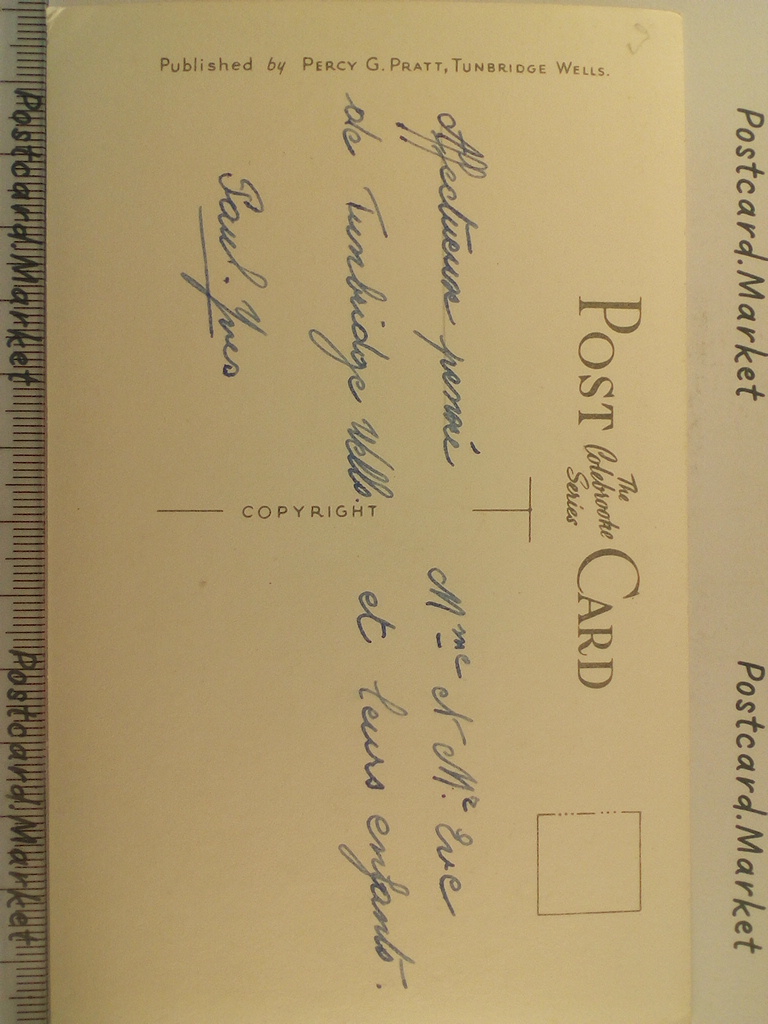 POST CARD
The
Colebrooke
Series
Published by PERCY G. PRATT, TUNBRIDGE WELLS.
Affectueuse pensée
de Tunbridge Wells.
Paul. Yves
COPYRIGHT
Mme & Mr Eve
et leurs enfants.
Postcard.Market
Postcard.Market
Postcard.Market
Postcard.Market